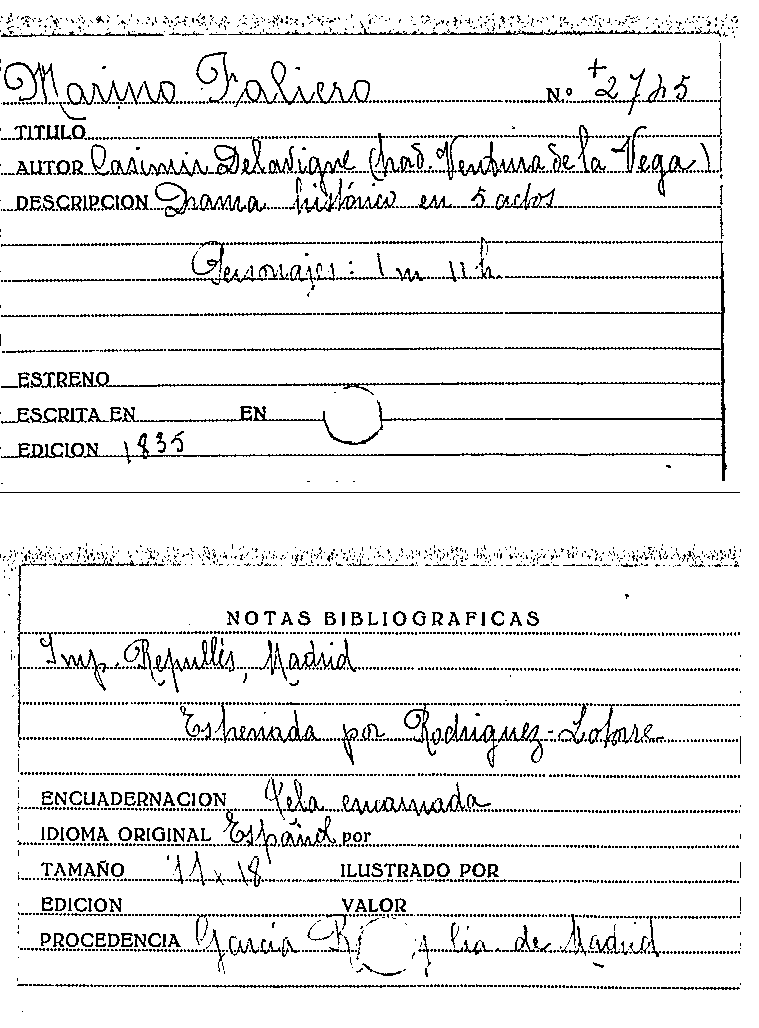 Marino Faliero Nº +2745
TITULO
AUTOR Casimir Delavigne (trad. Ventura de la Vega)
DESCRIPCION Drama histórico en 5 actos
Personajes: 1 m 11 h.
ESTRENO
ESCRITA EN EN
EDICION 1835
NOTAS BIBLIOGRAFICAS
Imp. Repullés, Madrid
Estrenada por Rodriguez-Latorre
ENCUADERNACION Tela encarnada
IDIOMA ORIGINAL Español por
TAMAÑO 11 x 18 ILUSTRADO POR
EDICION VALOR
PROCEDENCIA García y Cia. de Madrid